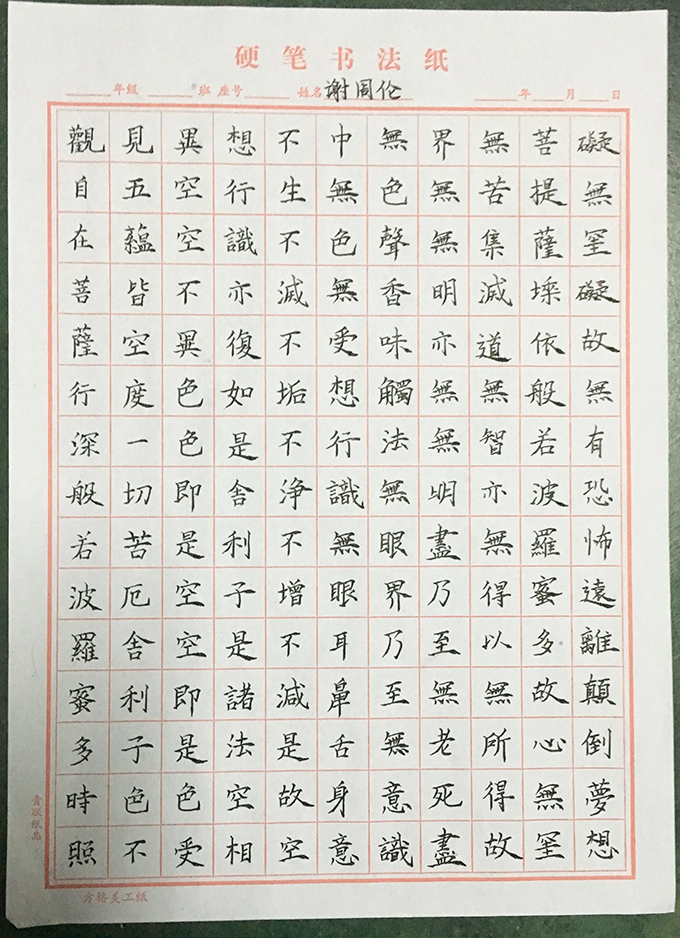 硬笔书法纸
年级 班 座号 姓名 謝周伦 年 月 日
觀自在菩薩行深般若波羅蜜多時照
見五蘊皆空度一切苦厄舍利子色不
異空空不異色色即是空空即是色受
想行識亦復如是舍利子是諸法空相
不生不滅不垢不淨不增不減是故空
中無色無受想行識無眼耳鼻舌身意
無色聲香味觸法無眼界乃至無意識
界無無明亦無無明盡乃至無老死盡
無苦集滅道無智亦無得以無所得故
菩提薩埵依般若波羅蜜多故心無罣
礙無罣礙故無有恐怖遠離顛倒夢想
方格美工纸